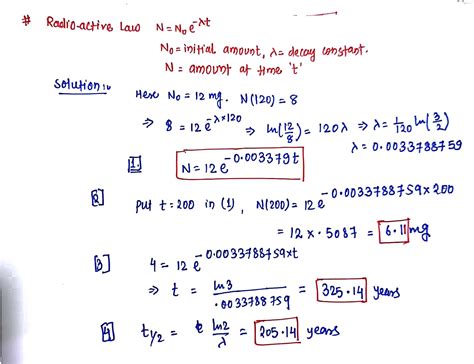 # Radio-active Law N = N₀e^-λt
N₀ = initial amount, λ = decay constant.
N = amount at time 't'
Solution:-
Here N₀ = 12 mg. N(120) = 8
⇒ 8 = 12 e^-λ×120 ⇒ ln(12/8) = 120λ ⇒ λ = 1/120 ln(3/2)
λ = 0.0033788759
[1] N = 12 e^-0.003379t
[2] put t = 200 in (1), N(200) = 12 e^-0.0033788759×200
= 12 × .5087 = 6.11 mg
[3] 4 = 12 e^-0.0033788759×t
⇒ t = ln3/.0033788759 = 325.14 years
[4] t₁/₂ = ln2/λ = 205.14 years